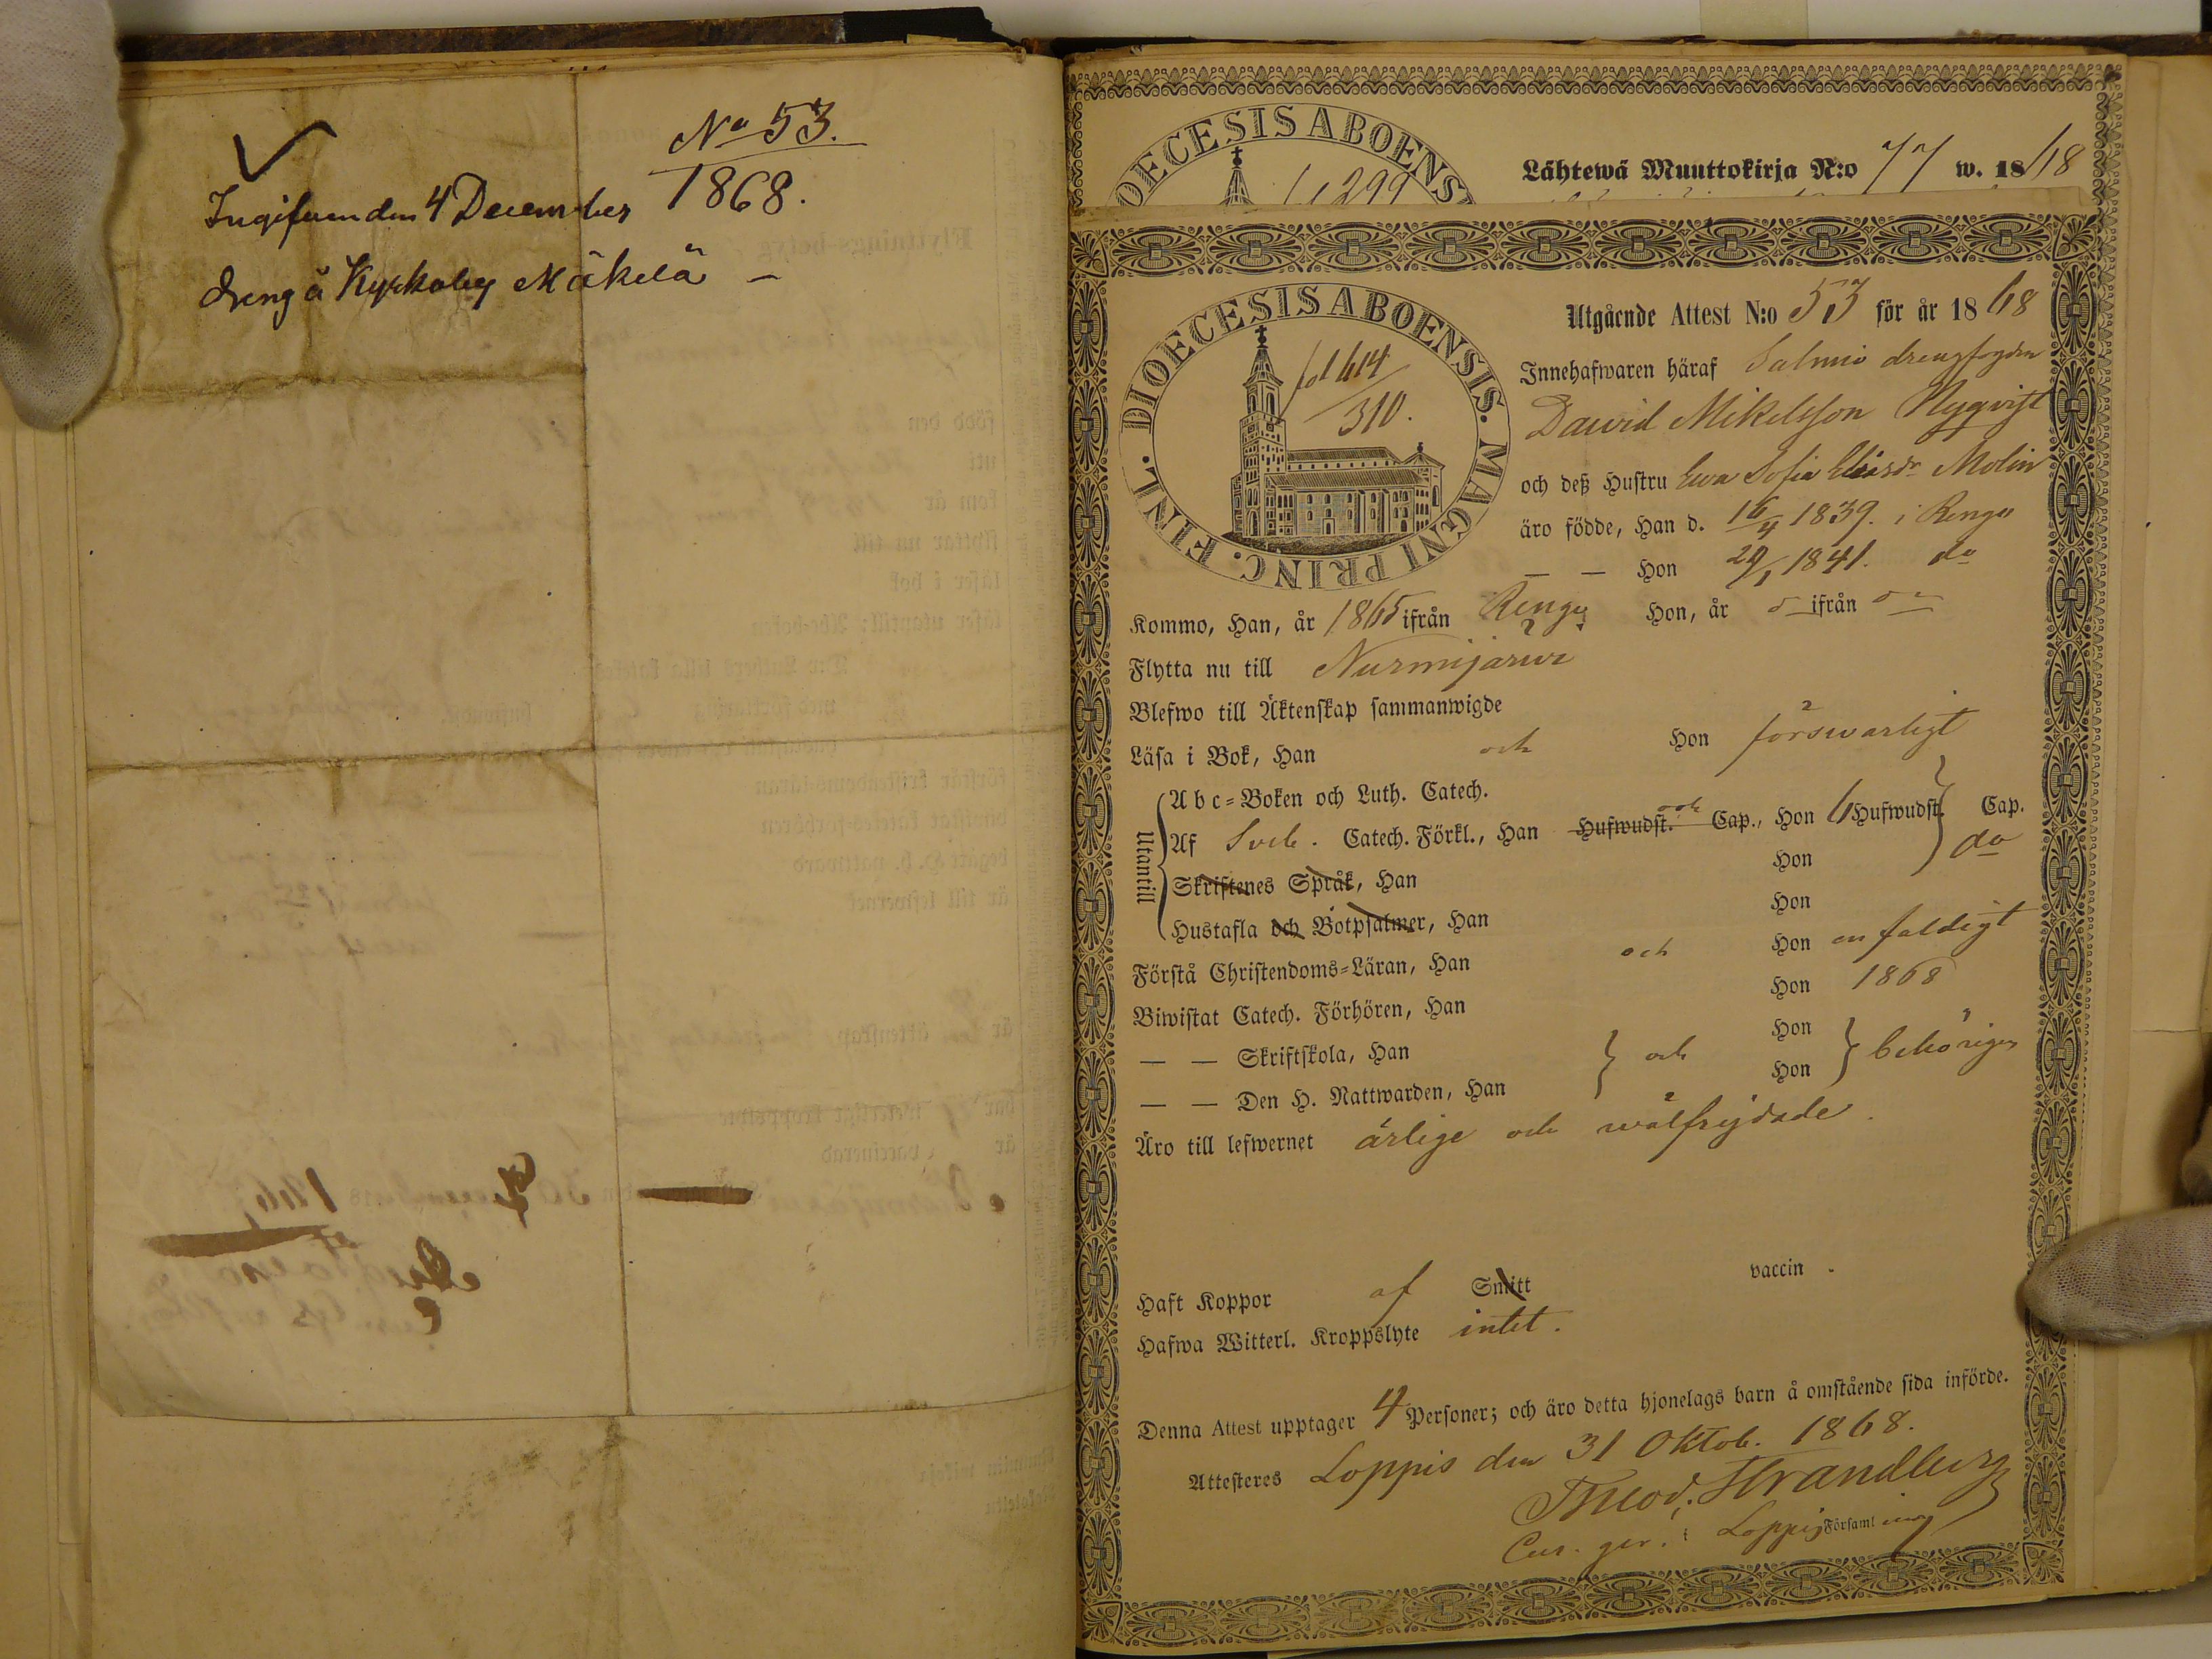 No 53.
1868.
Ingifven den 4 December
dreng å Kyrkoby Mäkelä –
DIOECESIS ABOENSIS
299
Lähtewä Muuttokirja N:o 77 w. 1868
DIOECESIS ABOENSIS. MAGNI PRINC. FINL.
fol 614
310.
Utgående Attest N:o 53 för år 1868
Innehafwaren häraf Salmio drengfogden
Dawid Mikelsson Nyqvist
och deß Hustru Ewa Sofia Eliasdr Molin
äro födde, Han d. 16/4 1839. i Rengo
— — Hon 29/1 1841. do
Kommo, Han, år 1865 ifrån Rengo Hon, år ifrån
Flytta nu till Nurmijärwi
Blefwo till Äktenskap sammanwigde
Läsa i Bok, Han och Hon förswarligt
Utantill
A b c=Boken och Luth. Catech.
Af Sveb. Catech. Förkl., Han Hufwudst. och Cap., Hon 6 Hufwudst. Cap.
Skriftenes Språk, Han Hon do
Hustafla och Botpsalmer, Han Hon
Förstå Christendoms=Läran, Han och Hon enfaldigt
Biwistat Catech. Förhören, Han Hon 1868
— — Skriftskola, Han och Hon behörigen
— — Den H. Nattwarden, Han Hon
Äro till lefwernet ärlige och wälfrejdade.
Haft Koppor af Smitt vaccin.
Hafwa Witterl. Kroppslyte intet.
Denna Attest upptager 4 Personer; och äro detta hjonelags barn å omstående sida införde.
Attesteras Loppis den 31 Oktob. 1868.
Theod. Strandberg
Cur. ger. i Loppis Församling